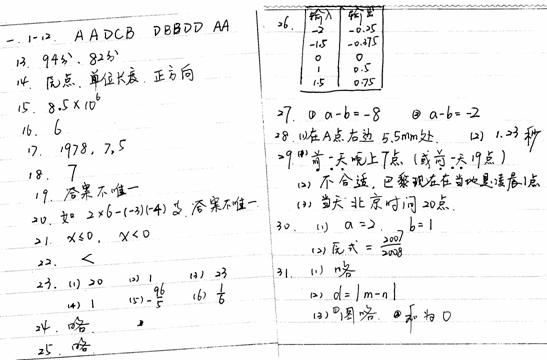 一、1-12. AADCB DBBDD AA
13. 94分、82分
14. 原点、单位长度、正方向
15. 8.5×10⁶
16. 6
17. 1978, 7,5
18. 7
19. 答案不唯一
20. 如 2×6-(-3)(-4) 答案不唯一
21. x≤0, x<0
22. <
23. (1) 20 (2) 1 (3) 23
(4) 1 (5) -96/5 (6) 1/6
24. 略
25. 略
26. 输入 输出
-2 -0.25
-1.5 -0.375
0 0
1 0.5
1.5 0.75
27. ① a-b=-8 ② a-b=-2
28. (1)在A点右边 5.5mm处. (2) 1.23秒
29. (1) 前一天晚上7点 (或前一天19点)
(2) 不合适, 巴黎现在在当地是凌晨1点
(3) 当天北京时间20点.
30. (1) a=2, b=1
(2) 原式 = 2007/2008
31. (1) 略
(2) d=|m-n|
(3) ①图略. ②和为0